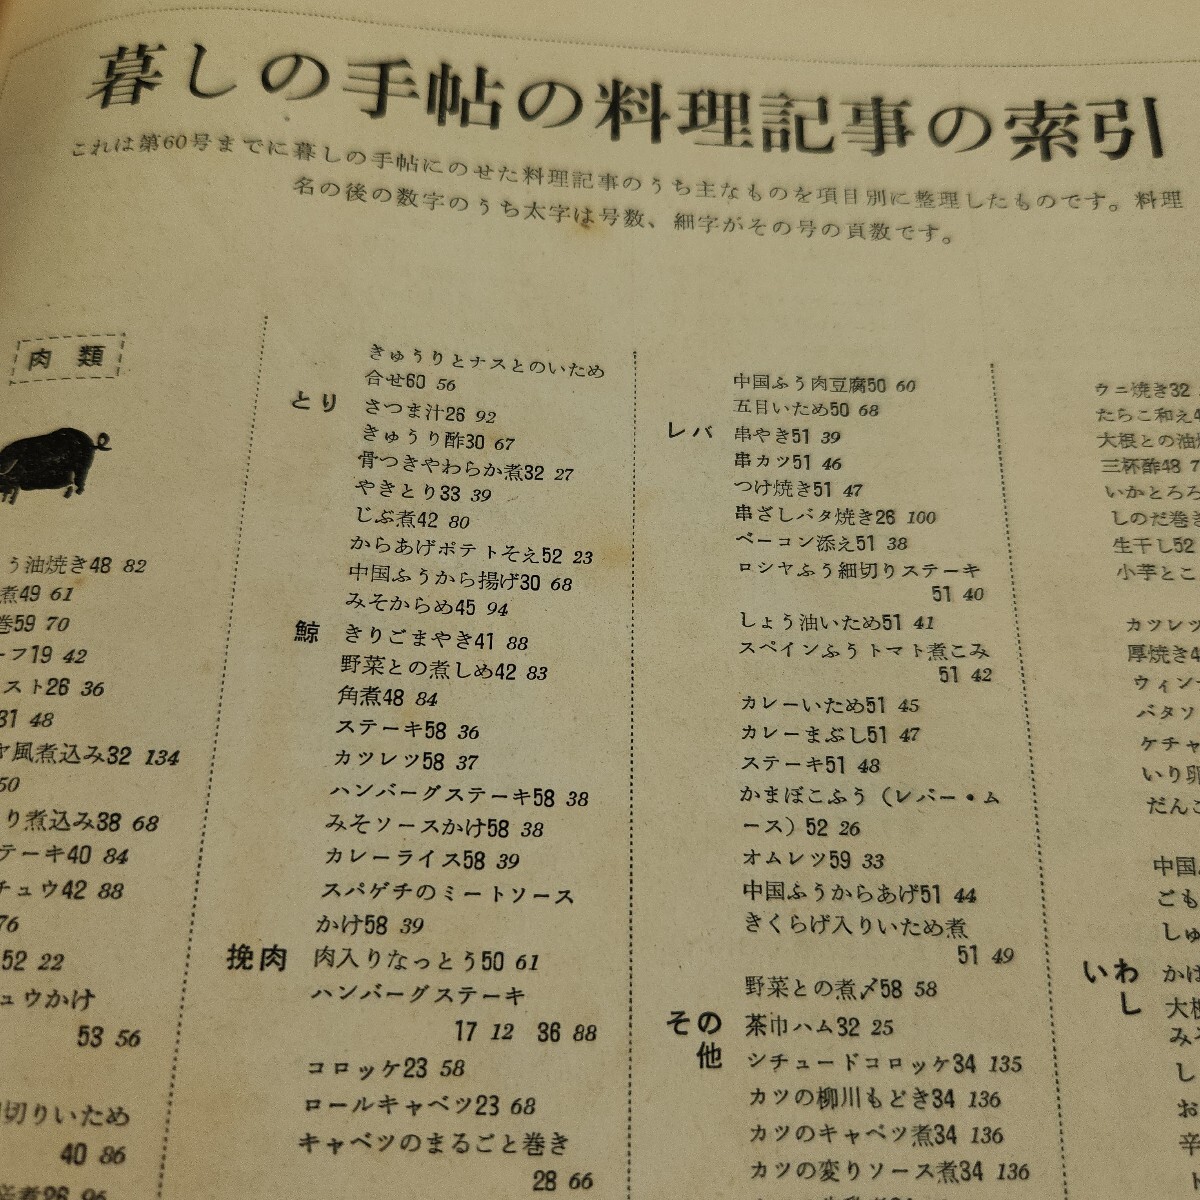 暮しの手帖の料理記事の索引
これは第60号までに暮しの手帖にのせた料理記事のうち主なものを項目別に整理したものです。料理
名の後の数字のうち太字は号数、細字がその号の頁数です。
肉類
う油焼き48 82
煮49 61
巻59 70
ーフ19 42
スト26 36
31 48
ヤ風煮込み32 134
50
り煮込み38 68
テーキ40 84
チュウ42 88
76
52 22
ュウかけ
53 56
切りいため
40 86
煮26 96
きゅうりとナスとのいため
合せ60 56
とり さつま汁26 92
きゅうり酢30 67
骨つきやわらか煮32 27
やきとり33 39
じぶ煮42 80
からあげポテトそえ52 23
中国ふうから揚げ30 68
みそからめ45 94
鯨 きりごまやき41 88
野菜との煮しめ42 83
角煮48 84
ステーキ58 36
カツレツ58 37
ハンバーグステーキ58 38
みそソースかけ58 38
カレーライス58 39
スパゲチのミートソース
かけ58 39
挽肉 肉入りなっとう50 61
ハンバーグステーキ
17 12 36 88
コロッケ23 58
ロールキャベツ23 68
キャベツのまるごと巻き
28 66
中国ふう肉豆腐50 60
五目いため50 68
レバ 串やき51 39
串カツ51 46
つけ焼き51 47
串ざしバタ焼き26 100
ベーコン添え51 38
ロシヤふう細切りステーキ
51 40
しょう油いため51 41
スペインふうトマト煮こみ
51 42
カレーいため51 45
カレーまぶし51 47
ステーキ51 48
かまぼこふう（レバー・ム
ース）52 26
オムレツ59 33
中国ふうからあげ51 44
きくらげ入りいため煮
51 49
野菜との煮〆58 58
その他 茶巾ハム32 25
シチュードコロッケ34 135
カツの柳川もどき34 136
カツのキャベツ煮34 136
カツの変りソース煮34 136
ウニ焼き32
たらこ和え4
大根との油焼
三杯酢48 7
いかとろろ
しのだ巻き
生干し52
小芋とこ
カツレツ
厚焼き4
ウィンナ
バタソ
ケチャ
いり卵
だんご
中国
ごも
しゅ
いわし かば
大根
みそ
し
お
辛